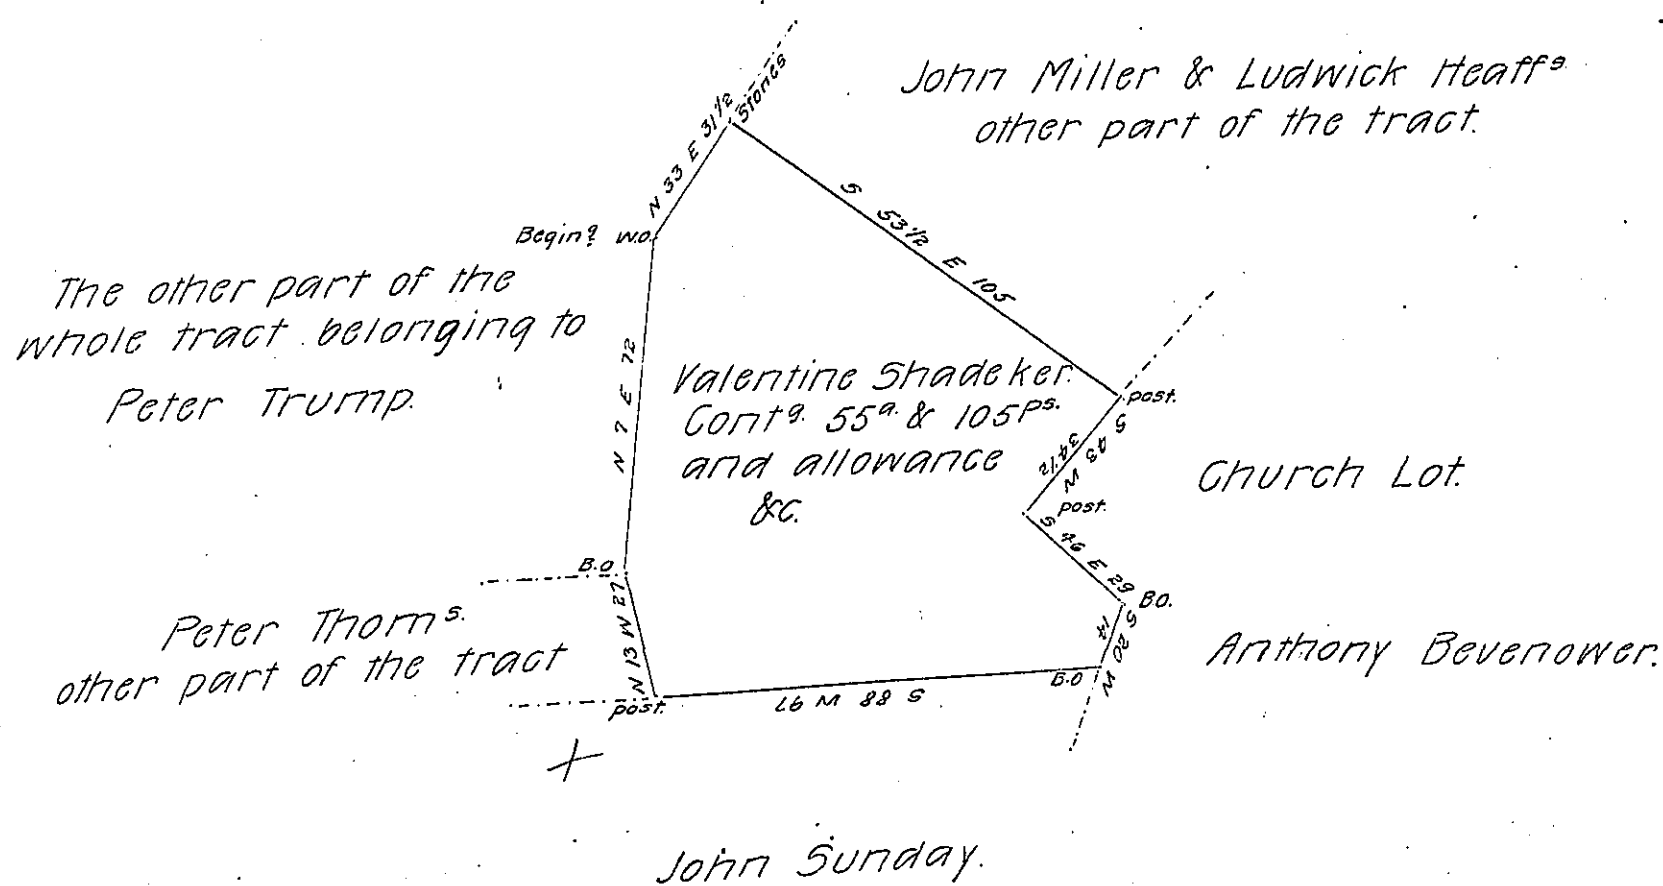 John Miller & Ludwick Heaffs
other part of the tract.
N 33 E 31 1/2
Stones
S 53 1/2 E 105
Begin? W.O.
The other part of the
whole tract belonging to
Peter Trump.
N 7 E 72
Valentine Shadeker.
Contg. 55a. & 105 Ps.
and allowance
&c.
post.
S 43 W
34 1/2
Church Lot.
post.
S 46 E 29
B.O.
B.O.
Peter Thoms.
other part of the tract
N 13 W 27
S 20 W
14
Anthony Bevenower.
B.O
post.
S 88 W 97
John Sunday.